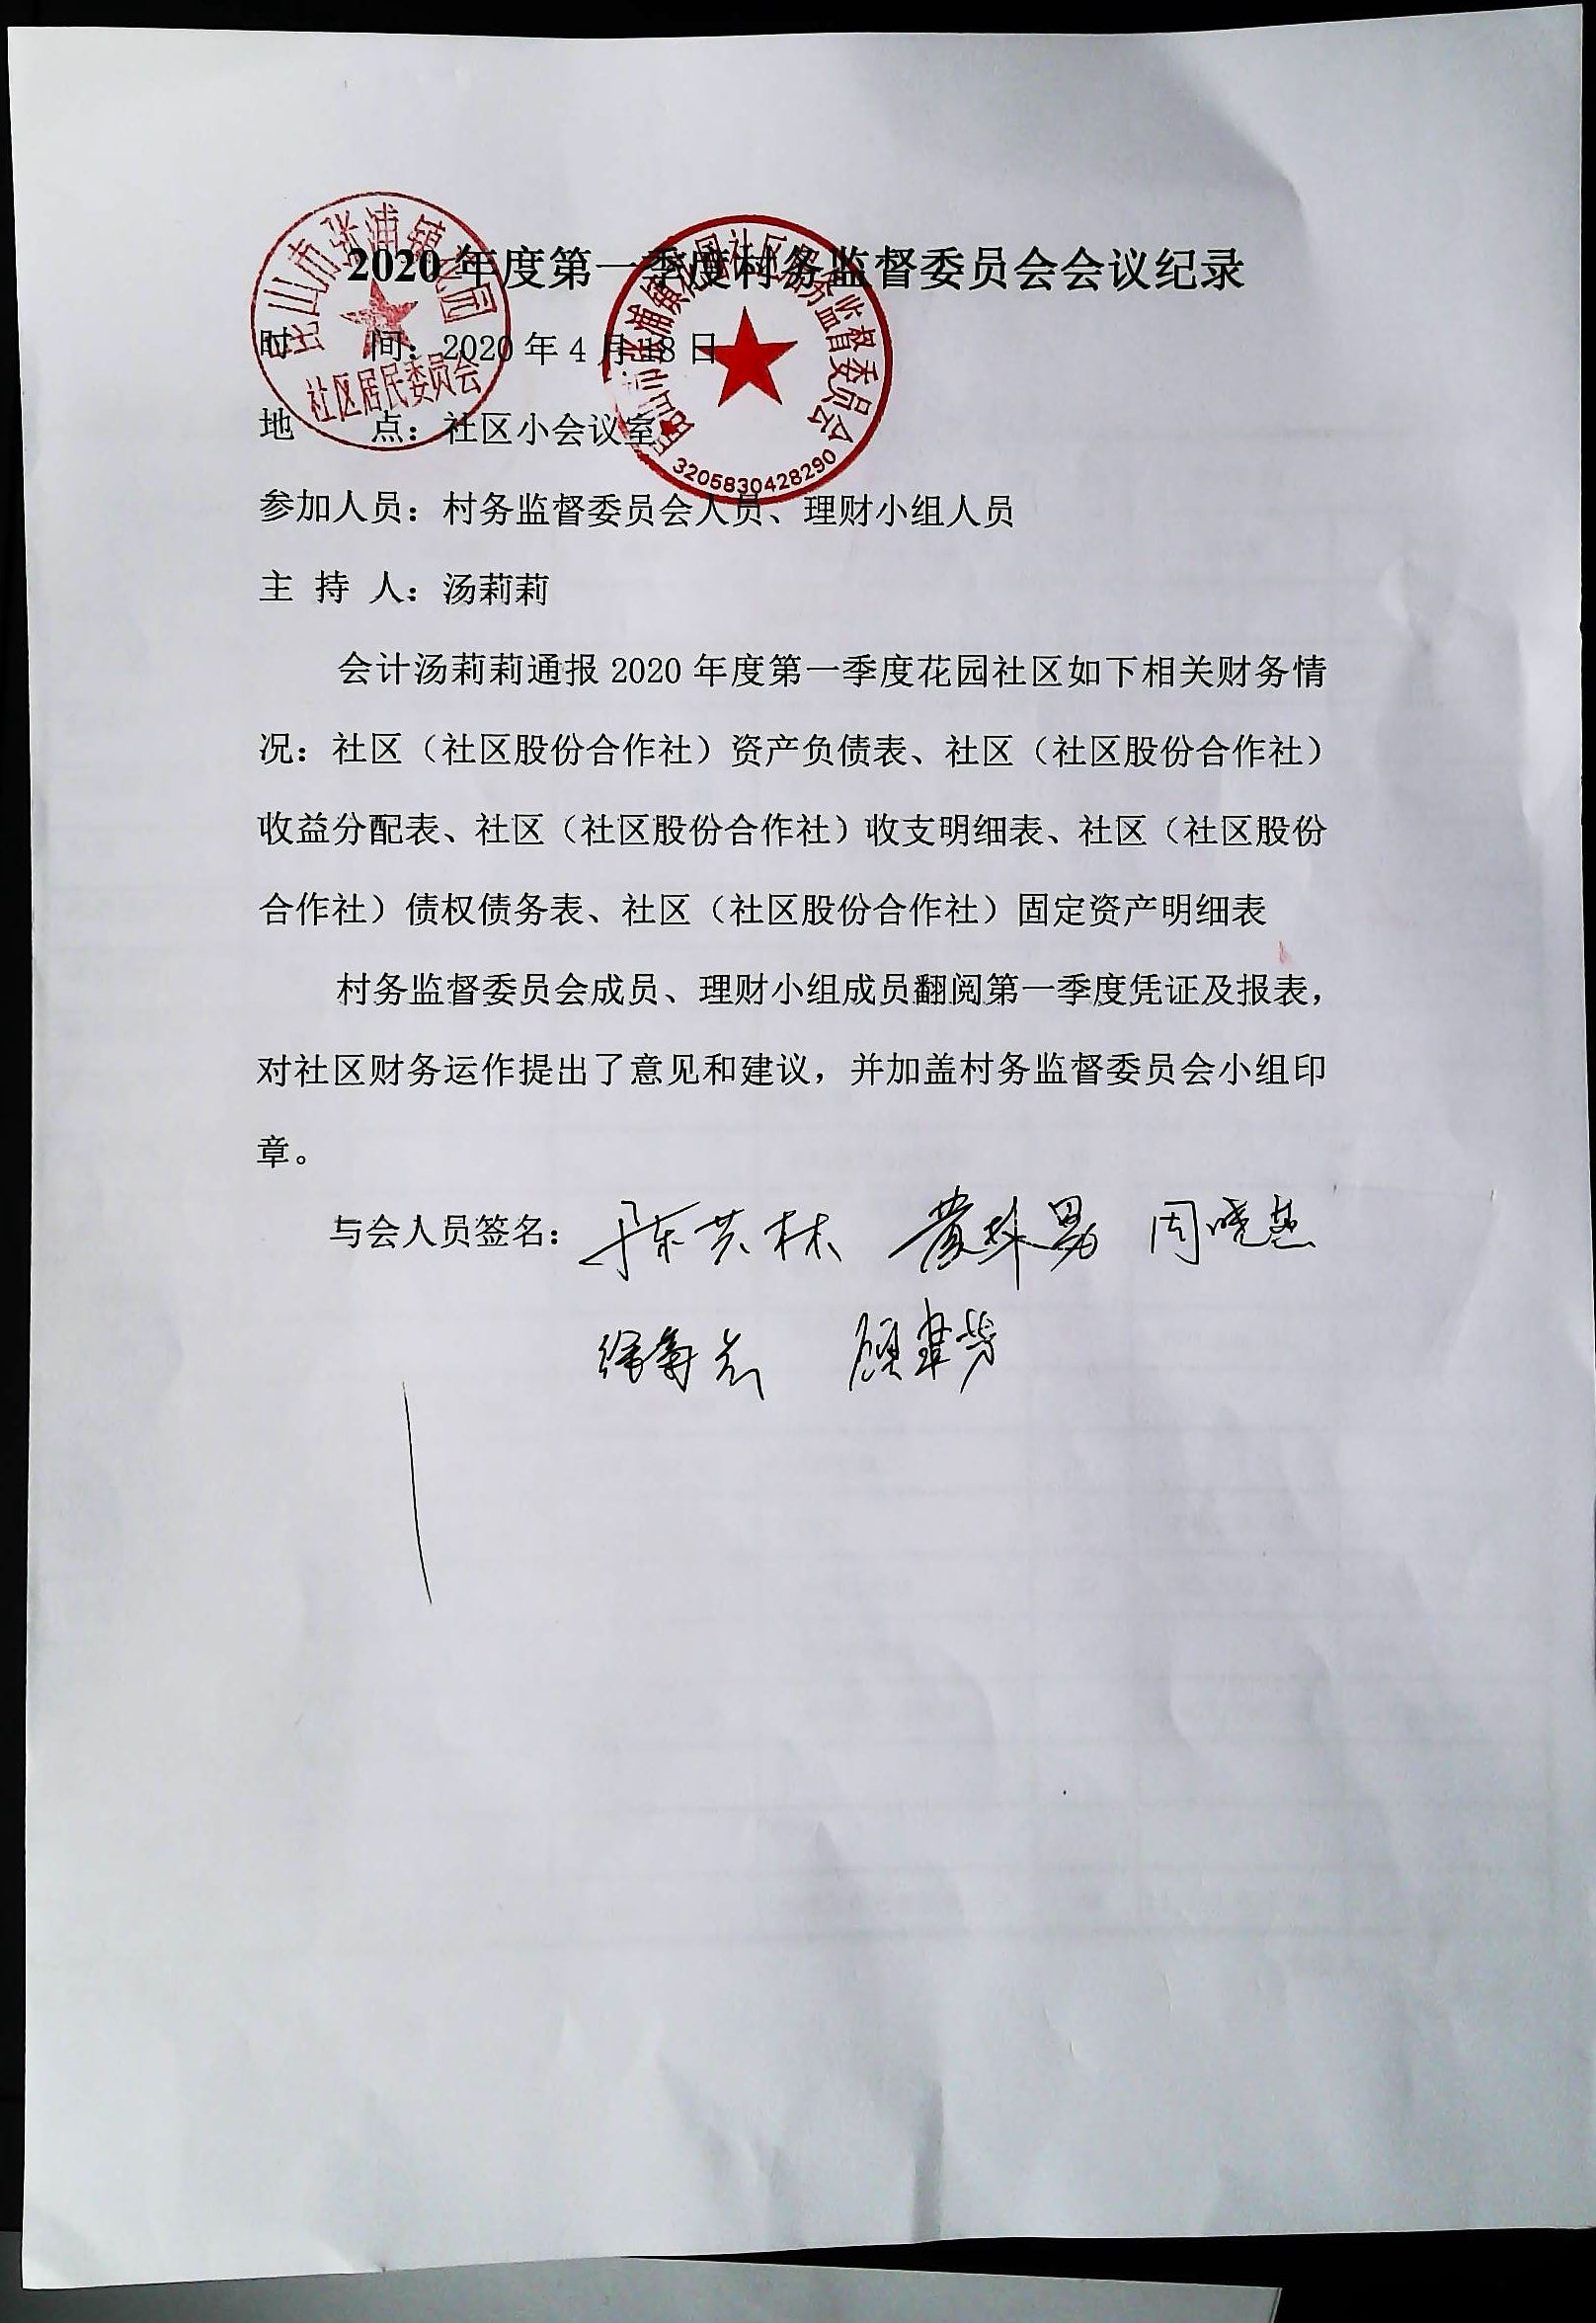 2020 年度第一季度村务监督委员会会议纪录
昆山市张浦镇花园
社区居民委员会
昆山市张浦镇花园社区居务监督委员会
3205830428290
时 间：2020 年 4 月 18 日
地 点：社区小会议室
参加人员：村务监督委员会人员、理财小组人员
主 持 人：汤莉莉
会计汤莉莉通报 2020 年度第一季度花园社区如下相关财务情
况：社区（社区股份合作社）资产负债表、社区（社区股份合作社）
收益分配表、社区（社区股份合作社）收支明细表、社区（社区股份
合作社）债权债务表、社区（社区股份合作社）固定资产明细表
村务监督委员会成员、理财小组成员翻阅第一季度凭证及报表，
对社区财务运作提出了意见和建议，并加盖村务监督委员会小组印
章。
与会人员签名：